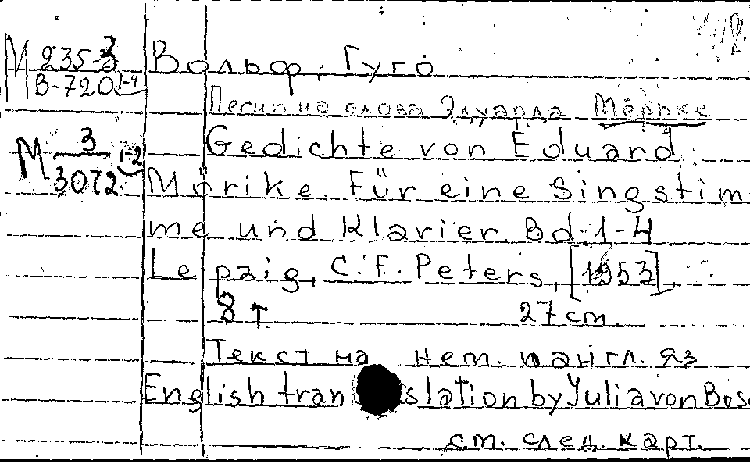 М 235-3
В-720 1-4
Вольф, Гуго
Песни на слова Эдуарда Мёрике
М 3 1-2
3072
Gedichte von Eduard
Mörike. Für eine Singstim
me und Klavier Bd-1-4
Le pzig, C. F. Peters, [1953].
3 т 27 cm.
Текст на нем. и англ. яз
English translation by Julia von Bose
см. след. карт.